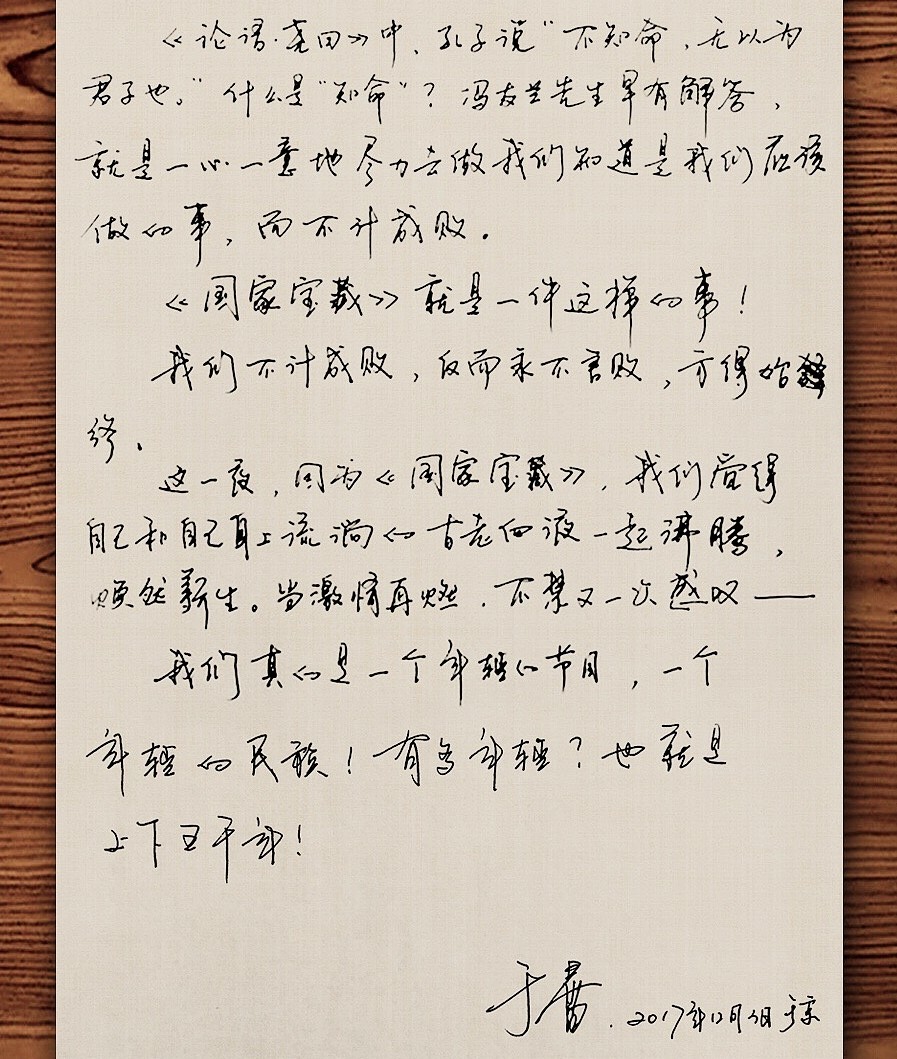 《论语·尧曰》中，孔子说“不知命，无以为
君子也。”什么是“知命”？冯友兰先生早有解答，
就是一心一意地尽力去做我们知道是我们应该
做的事，而不计成败。
《国家宝藏》就是一件这样的事！
我们不计成败，反而永不言败，方得始
终。
这一夜，因为《国家宝藏》，我们觉得
自己和自己身上流淌的古老血液一起沸腾，
焕然新生。当激情再燃，不禁又一次感叹——
我们真的是一个年轻的节目，一个
年轻的民族！有多年轻？也就是
上下五千年！
于蕾.2017年12月 日于京